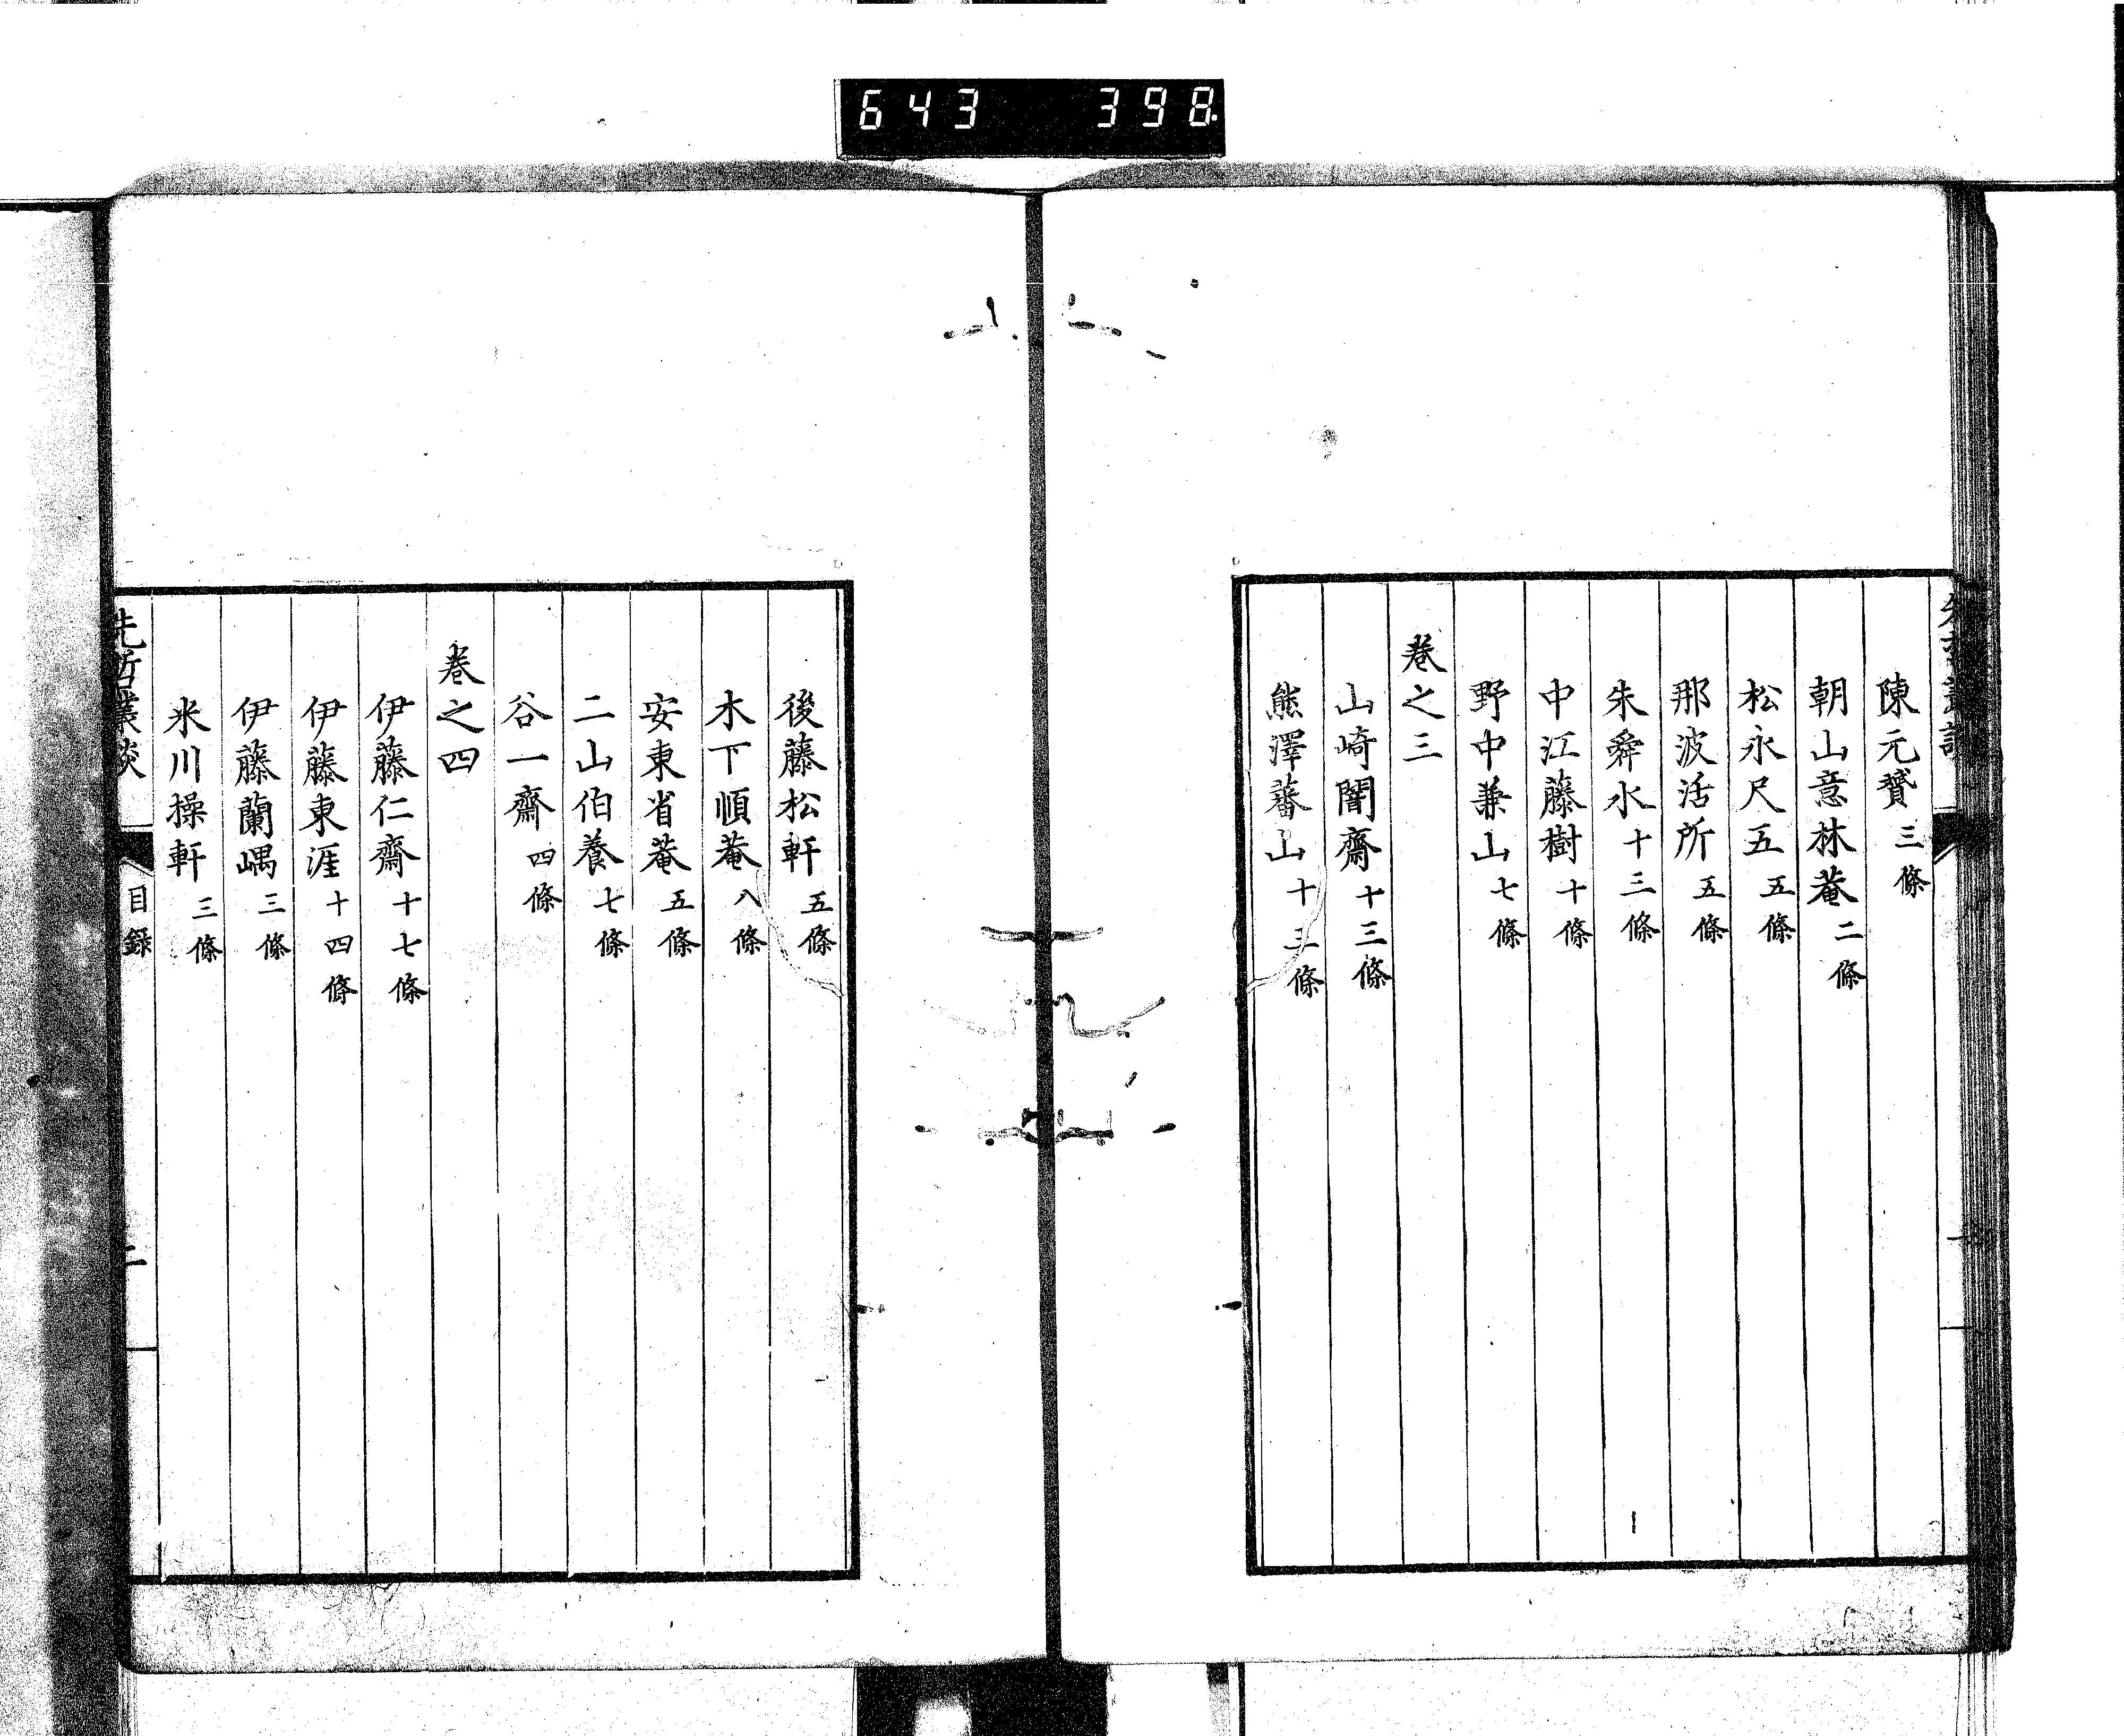 643 398
陳元贇 三條
朝山意林菴 二條
松永尺五 五條
那波活所 五條
朱舜水 十三條
中江藤樹 十條
野中兼山 七條
卷之三
山崎闇齋 十三條
熊澤蕃山 十三條
後藤松軒 五條
木下順菴 八條
安東省菴 五條
二山伯養 七條
谷一齋 四條
卷之四
伊藤仁齋 十七條
伊藤東涯 十四條
伊藤蘭嵎 三條
米川操軒 三條
先哲叢談 目錄 二